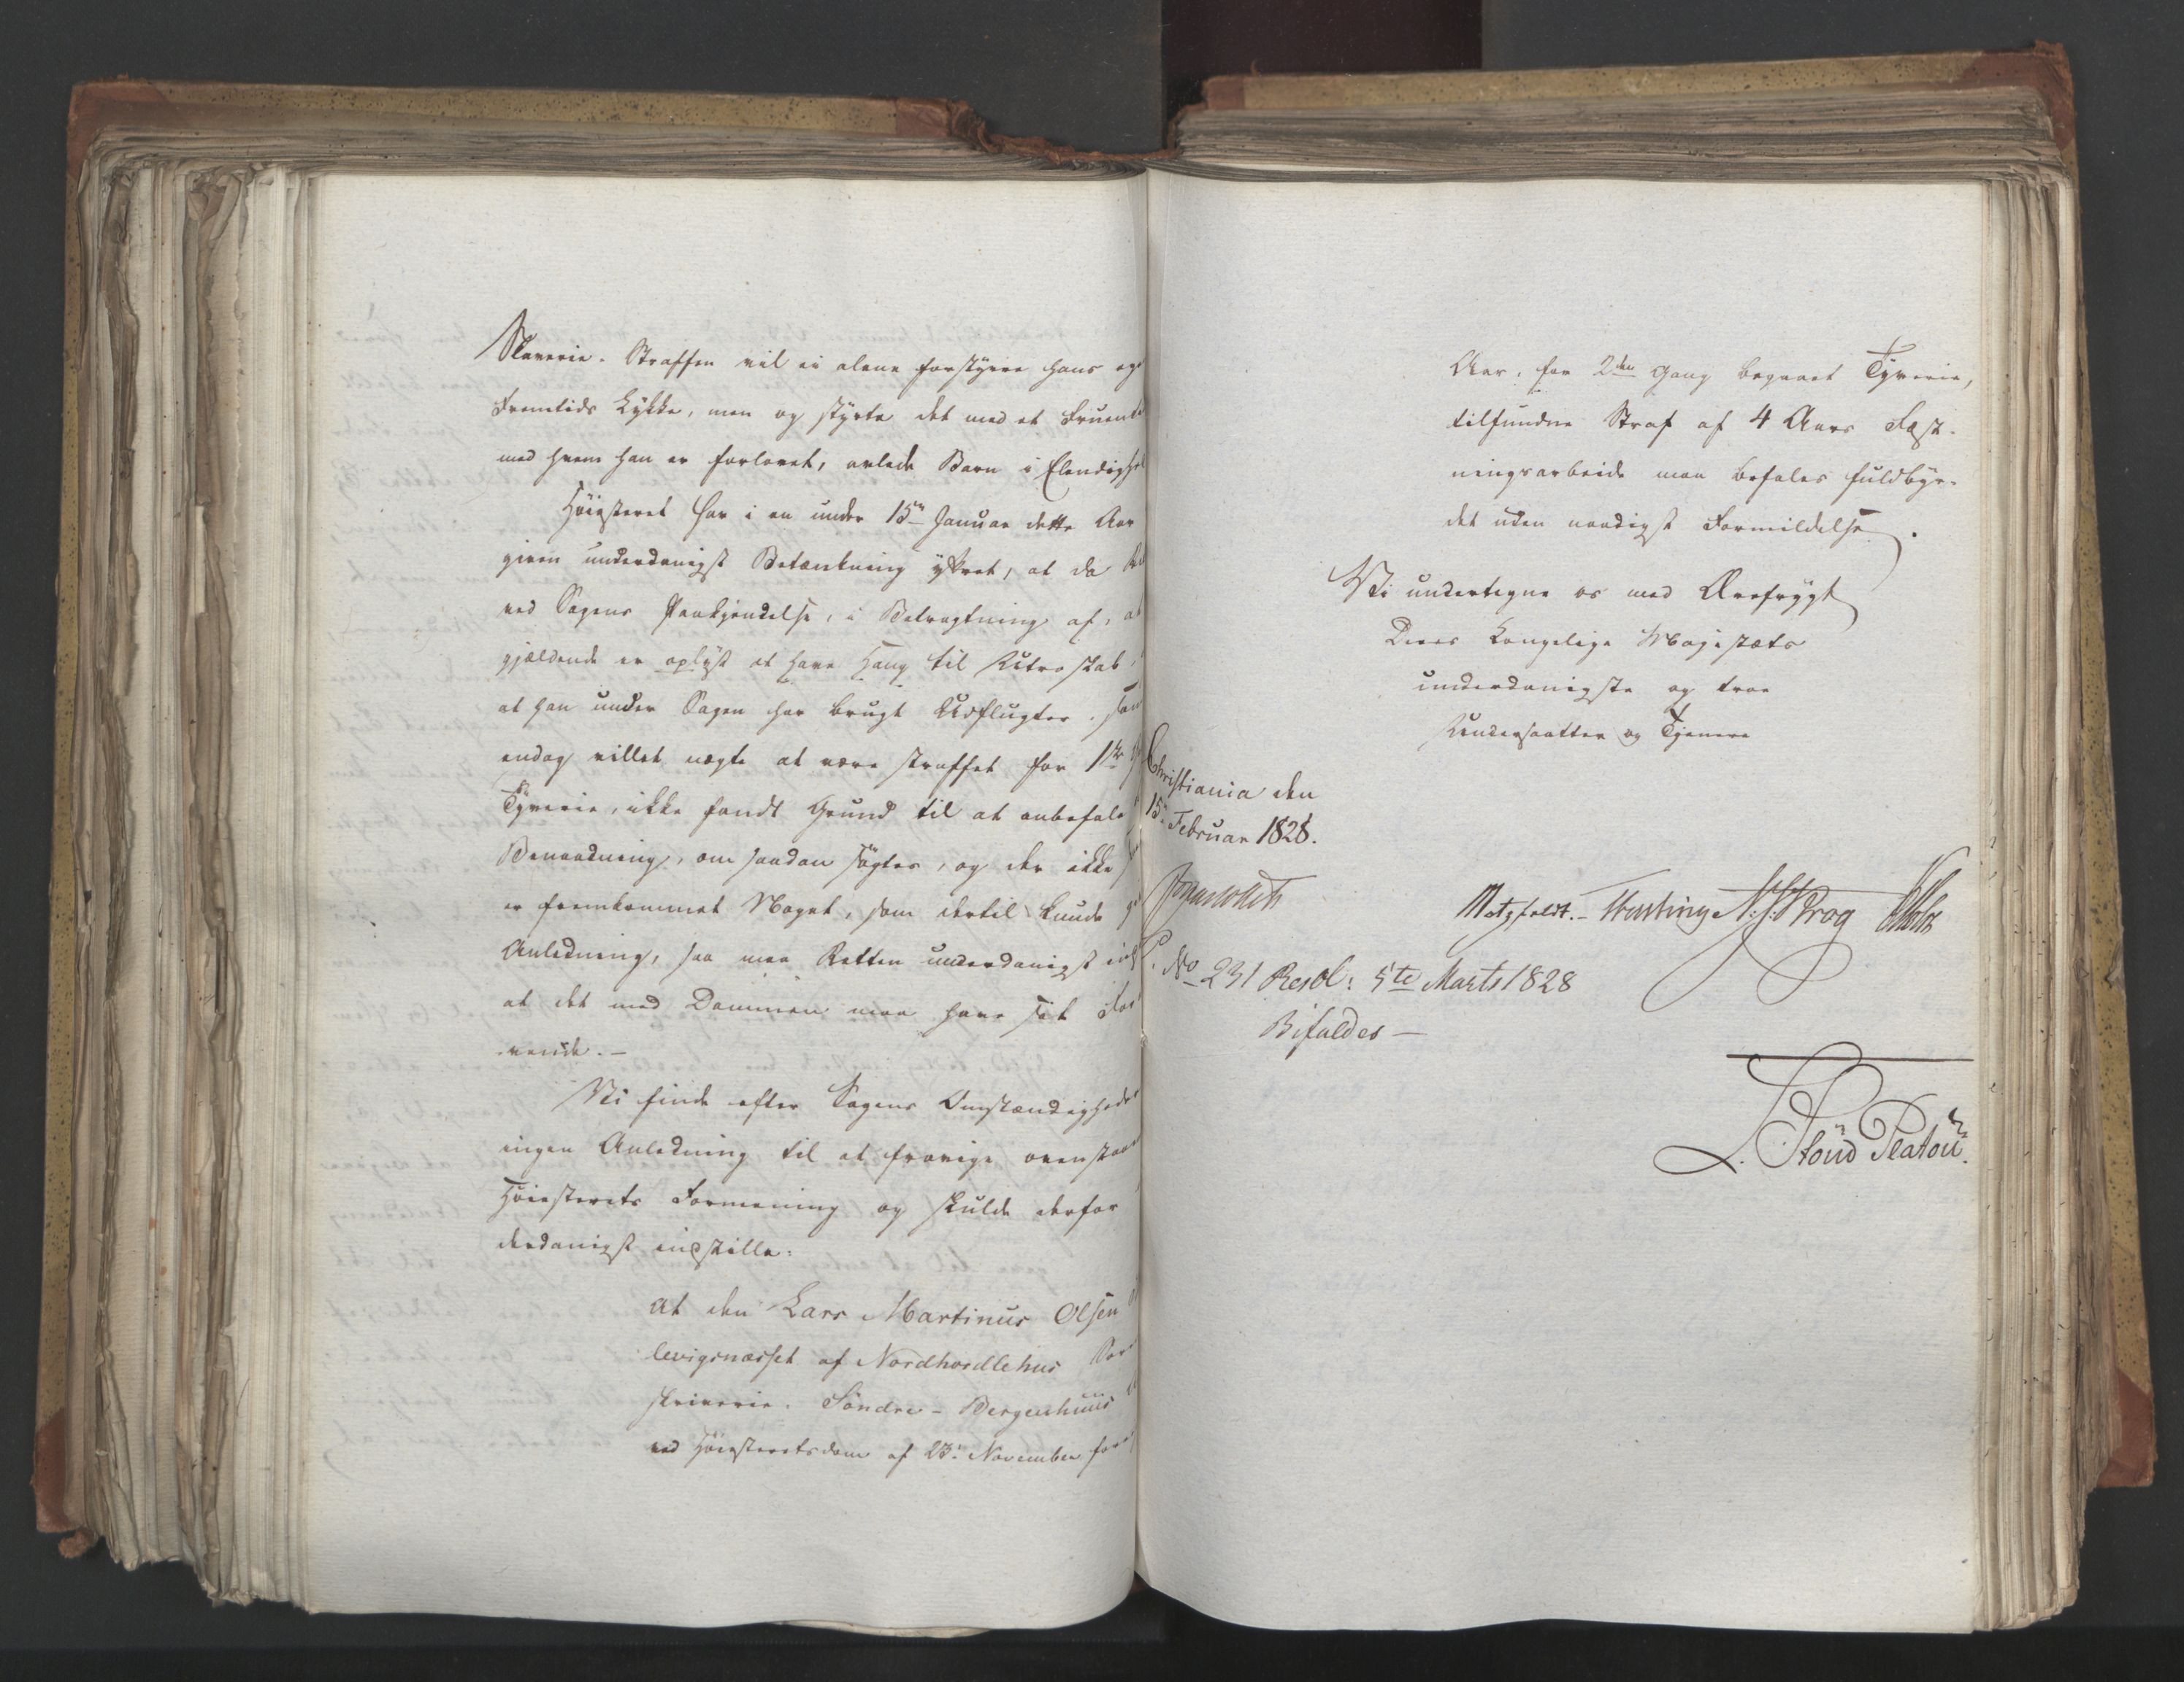 Slaverie. Straffen vil ei alene forstyrre hans eg
Fremtids Lykke, men og styrte det med et Fruent
med hvem han er forlovet, avlede Barn i Elendighe
Høiesteret har i en under 15n Januar dette Aar
given underdanigst Betænkning yttret, at da
ved Sagens Paakjendelse, i Betragtning af, at
gjældende er oplyst at have Hang til Utroskab,
at han under Sagen har brugt Udflugter, sam
endog villet nægte at være straffet for 1ste G
Tyverie, ikke fandt Grund til at anbefale
Benaadning, om saadan søgtes, og der ikke
er fremkommet Noget, som dertil kunde g
Anledning, saa maa Retten underdanigst ind
at det med Dommen maa have sit For
rende. -
Vi finde efter Sagens Omstændigheder
ingen Anledning til at fravige ovenstaa
Høiesterets Formening og skulde derfor
derdanigst indstille:
at den Lars Martinus Olsen
levigsnæsset af Nordhordlehns Sor
skriverie, Søndre-Bergenhuus
ved Høiesteretsdom af 23n November forr
Aar, for 2den Gang begaaet Tyverie,
tilfundne Straf af 4 Aars Fæst-
ningsarbeide maa befales fuldbyr-
det uden naadigst Formildelse.
Vi undertegne os med Ærefrygt
Deres Kongelige Majestæts
underdanigste og troe
Undersaatter og Tjenere
Christiania den
15n Februar 1828.
Motzfeldt. N. J. Krog
No 231 Resol: 5te Marts 1828
Bifaldes -
L. Stoud Platou.